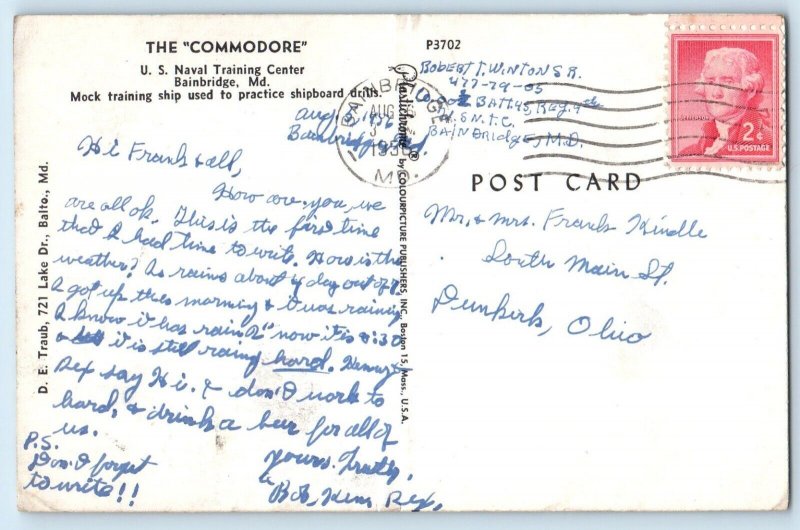 THE "COMMODORE"
U. S. Naval Training Center
Bainbridge, Md.
Mock training ship used to practice shipboard drills.
Aug
1956
Bainbridge, Md.
Hi Frank & all,
How are you, we
are all ok. This is the first time
that I had time to write. How is the
weather? It rains about 4 day out of 7.
I got up this morning & it was raining
I know it has rain 2" now it is 8:30
& it is still raing hard. Kenny &
Rex say Hi. & don't work to
hard, & drink a beer for all of
us.
Yours Truly,
Bob, Ken, Rex,
P.S.
Don't forget
to write!!
D. E. Traub, 721 Lake Dr., Balto., Md.
Plastichrome ® by COLOURPICTURE PUBLISHERS, INC., Boston 15, Mass., U.S.A.
P3702
ROBERT T. WINTON S.R.
477-79-05
BATT 45 REG. 4th
U.S.N.T.C.
BAINBRIDGE, M.D.
BAINBRIDGE
AUG
1956
MD.
2¢
U.S. POSTAGE
POST CARD
Mr. & Mrs. Frank Kindle
South Main St.
Dunkirk, Ohio